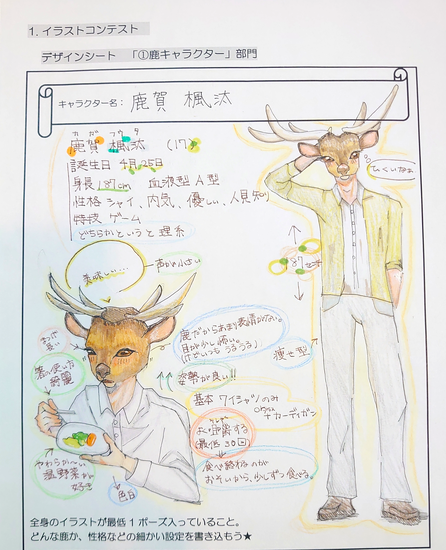 1. イラストコンテスト
デザインシート 「①鹿キャラクター」部門
キャラクター名: 鹿賀 楓汰
カガ フウタ
鹿賀 楓汰 (17)
誕生日 4月25日
身長 187cm 血液型 A型
性格 シャイ、内気、優しい、人見知り
特技 ゲーム
どちらかというと理系
美味しい…
声が小さい
ひくいなぁ
まつげ長い
箸の使い方綺麗
鹿だからあまり表情がない。
目が少し怖い。
(けどいつもうるうる)
姿勢が良い!!
187センチ
痩せ型
基本ワイシャツのみ
+カーディガン
最低30回
食べ終わるのが
おそいから、少しずつ食べる。
やわらか〜い
温野菜が
好き
色白
全身のイラストが最低1ポーズ入っていること。
どんな鹿か、性格などの細かい設定を書き込もう★